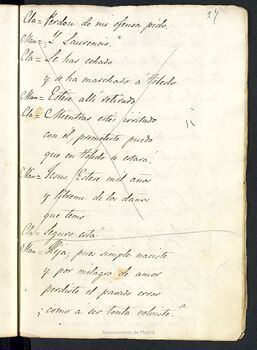 27
Cla= Perdon de mi ofensa pido.
Man= Y Laurencio.
Cla= Le has echado
y se ha marchado a Toledo
Man= Estese allí retirado
Cla= Mientras estés irritado
con el prometerte puedo
que en Toledo se estará.
Man= Jesus, Estese mil años
y libreme de los daños
que temo
Cla= Seguro está
Man= Hija, pues simple naciste
y por milagro de amor
perdiste el pasado error
¿como a ser tonta volviste?
Ayuntamiento de Madrid